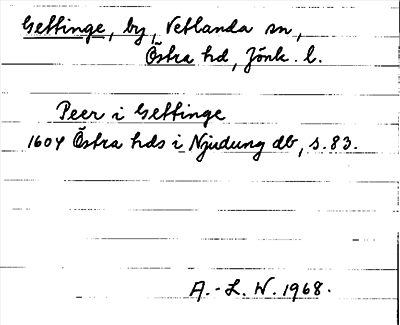 Gettinge, by, Vetlanda sn,
Östra hd, Jönk. l.
Peer i Gettinge
1604 Östra hds i Njudung db, s. 83.
A.-L. W. 1968.